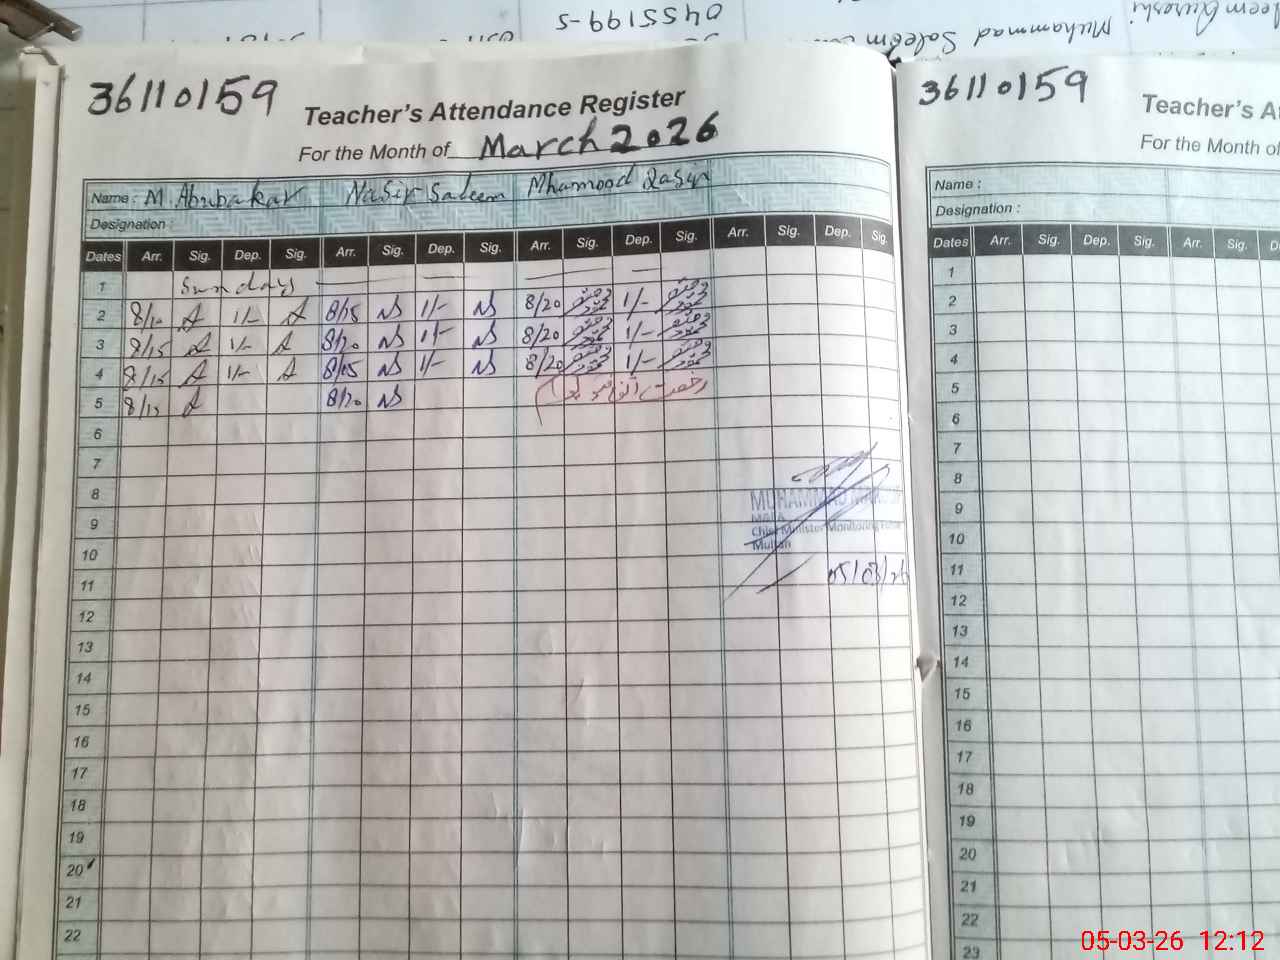 0455199-5
Muhammad Saleem
36110159
Teacher's Attendance Register
For the Month of March 2026
Name : M Abubakar Nasir Saleem Mhamood Qasim
Designation :
Dates Arr. Sig. Dep. Sig. Arr. Sig. Dep. Sig. Arr. Sig. Dep. Sig. Arr. Sig. Dep. Sig.
1 Sunday
2 8/10 A 1/- A 8/15 NS 1/- NS 8/20 1/-
3 8/15 A 1/- A 8/20 NS 1/- NS 8/20 1/-
4 8/15 A 1/- A 8/15 NS 1/- NS 8/20 1/-
5 8/15 A 8/20 NS رخصت
6
7
8
9
10
11
12
13
14
15
16
17
18
19
20
21
22
MUHAMMAD
Chief Minister Monitoring Force
Multan
05/03/26
36110159
Teacher's At
For the Month of
Name :
Designation :
Dates Arr. Sig. Dep. Sig. Arr. Sig. D
1
2
3
4
5
6
7
8
9
10
11
12
13
14
15
16
17
18
19
20
21
22
23
05-03-26 12:12